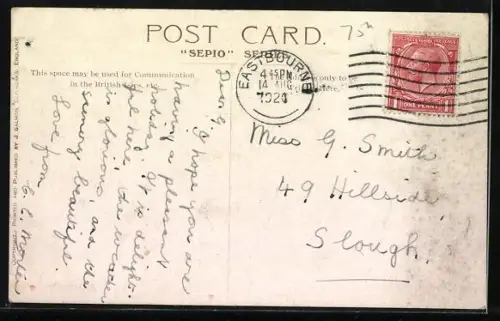 POST CARD.
"SEPIO" SERIES
75n
This space may be used for Communication
in the British
only to
EASTBOURNE
4 45PM
14 AUG
192
ONE PENNY
Miss G. Smith
49 Hillside,
Slough.
Dear G. I hope you are
having a pleasant
holiday. It is delight-
ful here, the weather
is glorious, and the
scenery beautiful.
Love from
PUBLISHED BY J. SALMON
ENGLAND